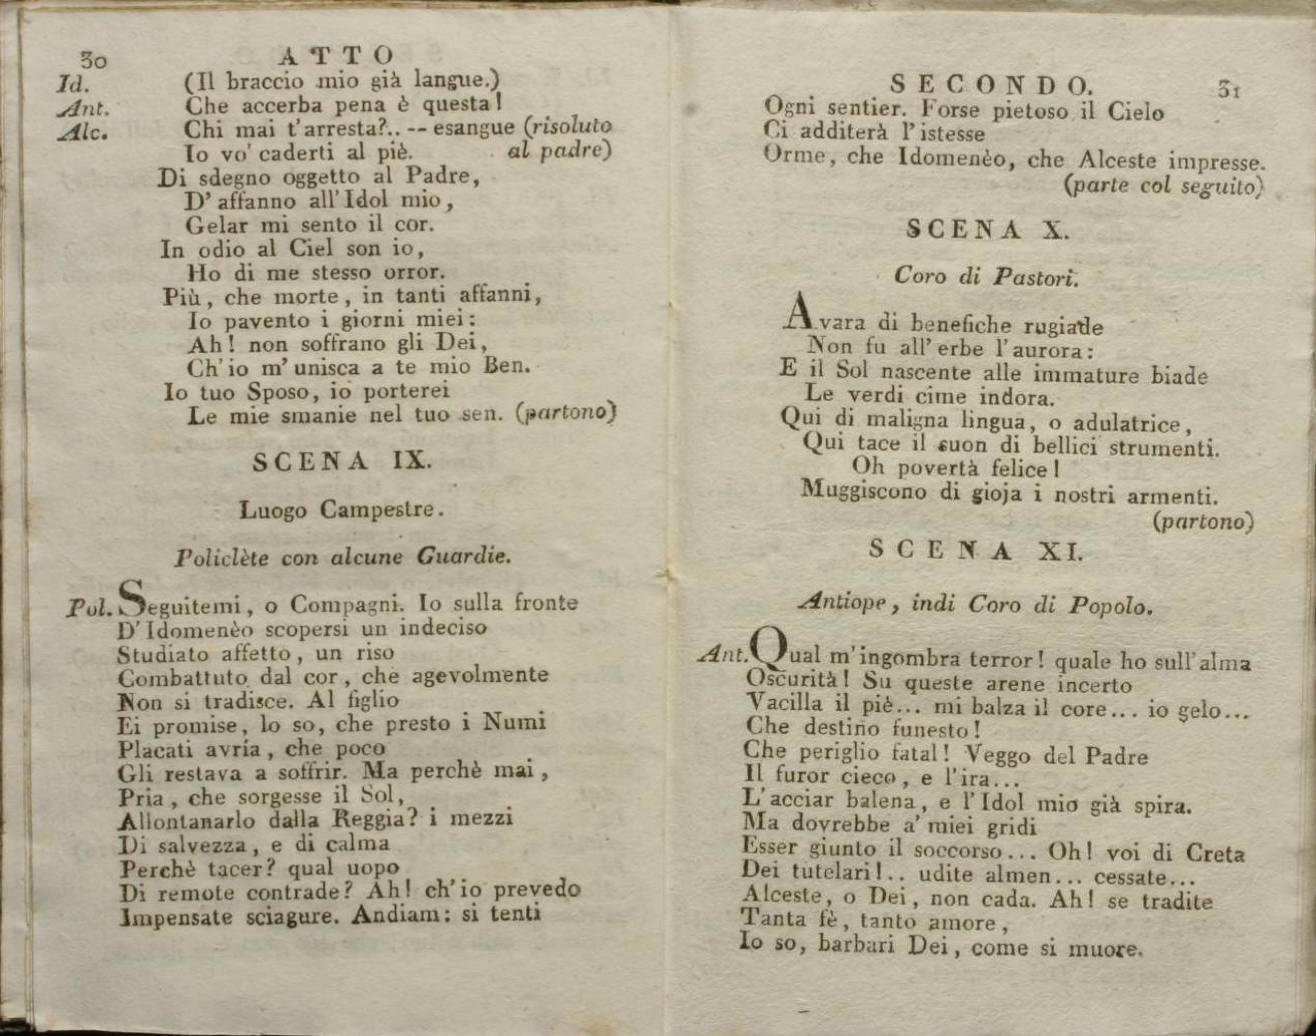 30 ATTO
Id. (Il braccio mio già langue.)
Ant. Che accerba pena è questa!
Alc. Chi mai t'arresta?.. -- esangue (risoluto
Io vo' caderti al piè. al padre)
Di sdegno oggetto al Padre,
D' affanno all' Idol mio,
Gelar mi sento il cor.
In odio al Ciel son io,
Ho di me stesso orror.
Più, che morte, in tanti affanni,
Io pavento i giorni miei:
Ah! non soffrano gli Dei,
Ch' io m' unisca a te mio Ben.
Io tuo Sposo, io porterei
Le mie smanie nel tuo sen. (partono)
SCENA IX.
Luogo Campestre.
Policlète con alcune Guardie.
Pol. Seguitemi, o Compagni. Io sulla fronte
D' Idomenèo scopersi un indeciso
Studiato affetto, un riso
Combattuto dal cor, che agevolmente
Non si tradisce. Al figlio
Ei promise, lo so, che presto i Numi
Placati avria, che poco
Gli restava a soffrir. Ma perchè mai,
Pria, che sorgesse il Sol,
Allontanarlo dalla Reggia? i mezzi
Di salvezza, e di calma
Perchè tacer? qual uopo
Di remote contrade? Ah! ch' io prevedo
Impensate sciagure. Andiam: si tenti
SECONDO. 31
Ogni sentier. Forse pietoso il Cielo
Ci additerà l' istesse
Orme, che Idomenèo, che Alceste impresse.
(parte col seguito)
SCENA X.
Coro di Pastori.
Avara di benefiche rugiade
Non fu all' erbe l' aurora:
E il Sol nascente alle immature biade
Le verdi cime indora.
Qui di maligna lingua, o adulatrice,
Qui tace il suon di bellici strumenti.
Oh povertà felice!
Muggiscono di gioja i nostri armenti.
(partono)
SCENA XI.
Antiope, indi Coro di Popolo.
Ant. Qual m' ingombra terror! quale ho sull' alma
Oscurità! Su queste arene incerto
Vacilla il piè... mi balza il core... io gelo...
Che destino funesto!
Che periglio fatal! Veggo del Padre
Il furor cieco, e l' ira...
L' acciar balena, e l' Idol mio già spira.
Ma dovrebbe a' miei gridi
Esser giunto il soccorso... Oh! voi di Creta
Dei tutelari!.. udite almen... cessate...
Alceste, o Dei, non cada. Ah! se tradite
Tanta fè, tanto amore,
Io so, barbari Dei, come si muore.